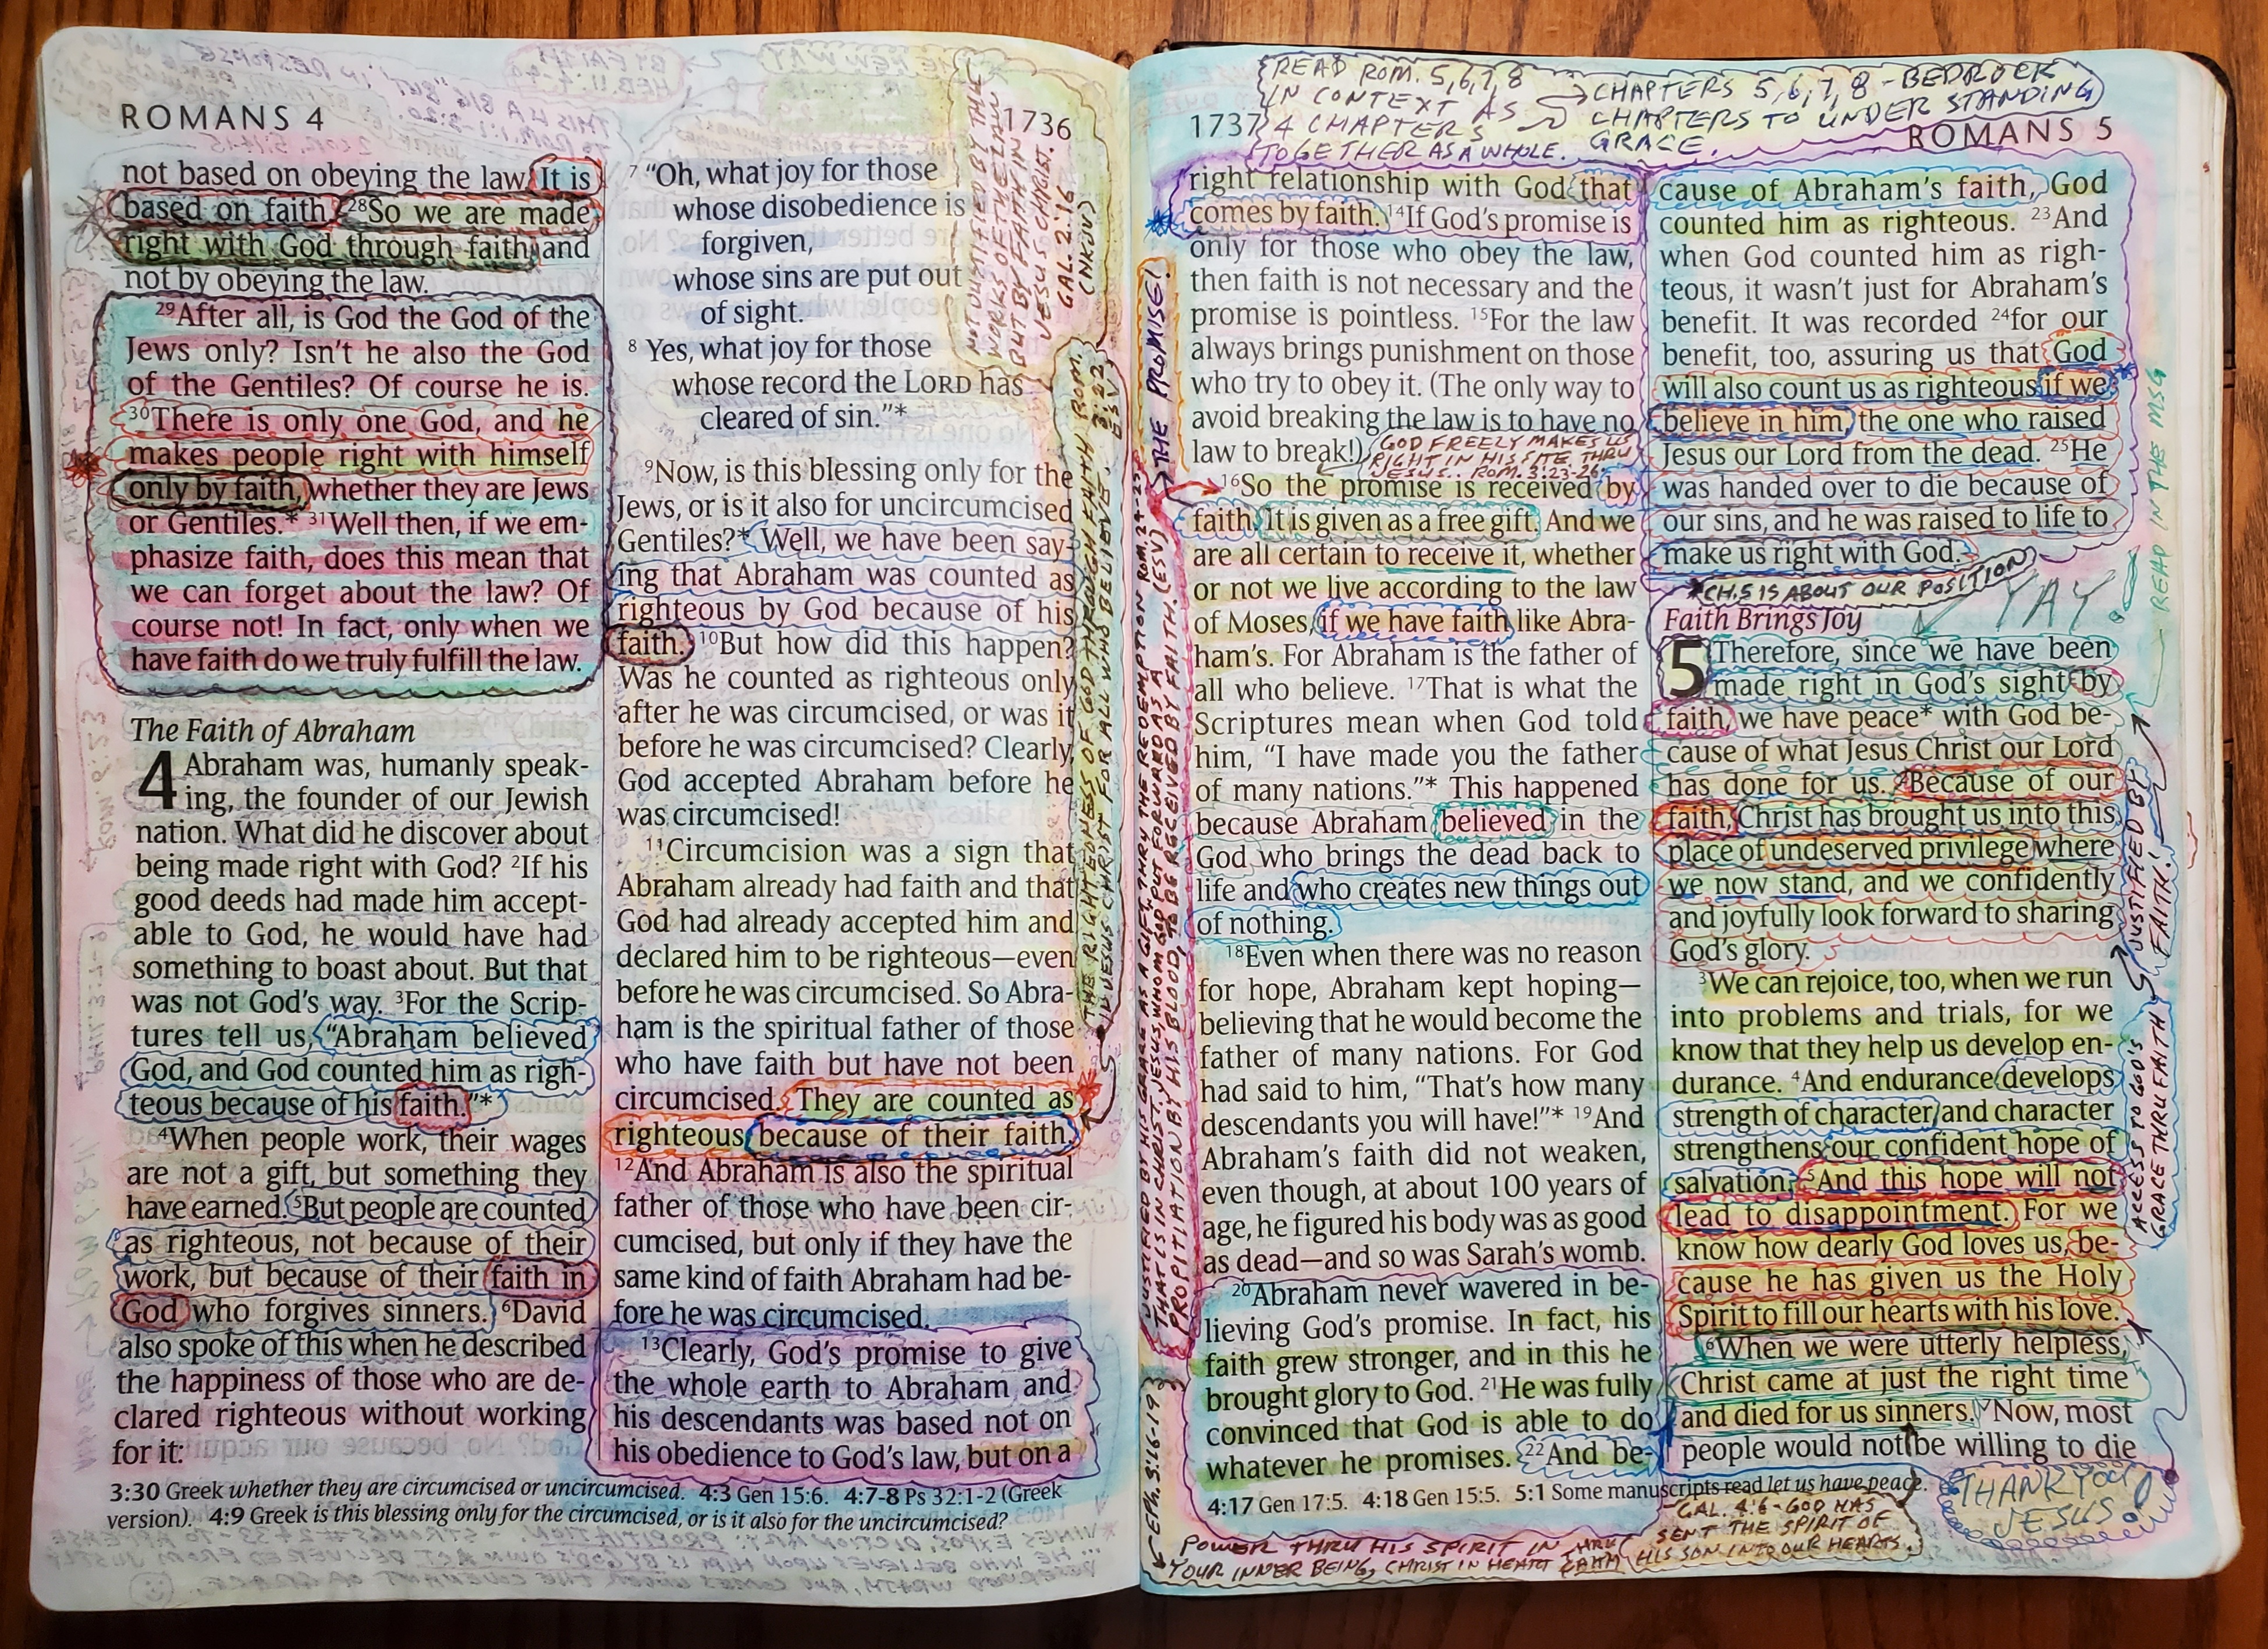 ROMANS 4
1736
not based on obeying the law. It is
based on faith. 28So we are made
right with God through faith and
not by obeying the law.
29After all, is God the God of the
Jews only? Isn't he also the God
of the Gentiles? Of course he is.
30There is only one God, and he
makes people right with himself
only by faith, whether they are Jews
or Gentiles.* 31Well then, if we em-
phasize faith, does this mean that
we can forget about the law? Of
course not! In fact, only when we
have faith do we truly fulfill the law.
The Faith of Abraham
4 Abraham was, humanly speak-
ing, the founder of our Jewish
nation. What did he discover about
being made right with God? 2If his
good deeds had made him accept-
able to God, he would have had
something to boast about. But that
was not God's way. 3For the Scrip-
tures tell us, "Abraham believed
God, and God counted him as righ-
teous because of his faith."*
4When people work, their wages
are not a gift, but something they
have earned. 5But people are counted
as righteous, not because of their
work, but because of their faith in
God who forgives sinners. 6David
also spoke of this when he described
the happiness of those who are de-
clared righteous without working
for it:
7 "Oh, what joy for those
whose disobedience is
forgiven,
whose sins are put out
of sight.
8 Yes, what joy for those
whose record the LORD has
cleared of sin."*
9Now, is this blessing only for the
Jews, or is it also for uncircumcised
Gentiles?* Well, we have been say-
ing that Abraham was counted as
righteous by God because of his
faith. 10But how did this happen?
Was he counted as righteous only
after he was circumcised, or was it
before he was circumcised? Clearly,
God accepted Abraham before he
was circumcised!
11Circumcision was a sign that
Abraham already had faith and that
God had already accepted him and
declared him to be righteous—even
before he was circumcised. So Abra-
ham is the spiritual father of those
who have faith but have not been
circumcised. They are counted as
righteous because of their faith.
12And Abraham is also the spiritual
father of those who have been cir-
cumcised, but only if they have the
same kind of faith Abraham had be-
fore he was circumcised.
13Clearly, God's promise to give
the whole earth to Abraham and
his descendants was based not on
his obedience to God's law, but on a
3:30 Greek whether they are circumcised or uncircumcised. 4:3 Gen 15:6. 4:7-8 Ps 32:1-2 (Greek
version). 4:9 Greek is this blessing only for the circumcised, or is it also for the uncircumcised?
NOT JUSTIFIED BY THE
WORKS OF THE LAW
BUT BY FAITH IN
JESUS CHRIST.
GAL. 2:16
(NKJV)
THE RIGHTEOUSNESS OF GOD THROUGH FAITH ROM.
IN JESUS CHRIST FOR ALL WHO BELIEVE.
3:22
ESV
READ ROM. 5,6,7,8
IN CONTEXT AS
4 CHAPTERS
TOGETHER AS A WHOLE.
CHAPTERS 5,6,7,8 - BEDROCK
CHAPTERS TO UNDERSTANDING
GRACE.
1737
ROMANS 5
right relationship with God that
comes by faith. 14If God's promise is
only for those who obey the law,
then faith is not necessary and the
promise is pointless. 15For the law
always brings punishment on those
who try to obey it. (The only way to
avoid breaking the law is to have no
law to break!)
GOD FREELY MAKES US
RIGHT IN HIS SITE THRU
JESUS. ROM. 3:23-26
16So the promise is received by
faith. It is given as a free gift. And we
are all certain to receive it, whether
or not we live according to the law
of Moses, if we have faith like Abra-
ham's. For Abraham is the father of
all who believe. 17That is what the
Scriptures mean when God told
him, "I have made you the father
of many nations."* This happened
because Abraham believed in the
God who brings the dead back to
life and who creates new things out
of nothing.
18Even when there was no reason
for hope, Abraham kept hoping—
believing that he would become the
father of many nations. For God
had said to him, "That's how many
descendants you will have!"* 19And
Abraham's faith did not weaken,
even though, at about 100 years of
age, he figured his body was as good
as dead—and so was Sarah's womb.
20Abraham never wavered in be-
lieving God's promise. In fact, his
faith grew stronger, and in this he
brought glory to God. 21He was fully
convinced that God is able to do
whatever he promises. 22And be-
THE PROMISE!
JUSTIFIED BY HIS GRACE AS A GIFT, THRU THE REDEMPTION ROM. 3:24-25
THAT IS IN CHRIST JESUS, WHOM GOD PUT FORWARD AS A
PROPITIATION BY HIS BLOOD, TO BE RECEIVED BY FAITH. (ESV)
EPH. 3:16-19
cause of Abraham's faith, God
counted him as righteous. 23And
when God counted him as righ-
teous, it wasn't just for Abraham's
benefit. It was recorded 24for our
benefit, too, assuring us that God
will also count us as righteous if we
believe in him, the one who raised
Jesus our Lord from the dead. 25He
was handed over to die because of
our sins, and he was raised to life to
make us right with God.
*CH. 5 IS ABOUT OUR POSITION
YAY!
Faith Brings Joy
5 Therefore, since we have been
made right in God's sight by
faith, we have peace* with God be-
cause of what Jesus Christ our Lord
has done for us. 2Because of our
faith, Christ has brought us into this
place of undeserved privilege where
we now stand, and we confidently
and joyfully look forward to sharing
God's glory.
3We can rejoice, too, when we run
into problems and trials, for we
know that they help us develop en-
durance. 4And endurance develops
strength of character, and character
strengthens our confident hope of
salvation. 5And this hope will not
lead to disappointment. For we
know how dearly God loves us, be-
cause he has given us the Holy
Spirit to fill our hearts with his love.
6When we were utterly helpless,
Christ came at just the right time
and died for us sinners. 7Now, most
people would not be willing to die
READ IN THE MSG
JUSTIFIED BY
FAITH!
ACCESS TO GOD'S
GRACE THRU FAITH
4:17 Gen 17:5. 4:18 Gen 15:5. 5:1 Some manuscripts read let us have peace.
POWER THRU HIS SPIRIT IN
YOUR INNER BEING, CHRIST IN HEART THRU FAITH
GAL. 4:6 - GOD HAS
SENT THE SPIRIT OF
HIS SON INTO OUR HEARTS.
THANK YOU
JESUS!